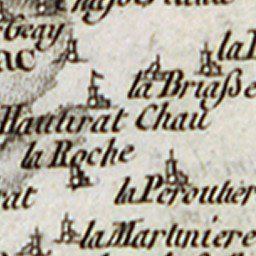 Geay
la
ac
la Briaſse
Hautirat Chau
la Roche
rat
la Peroutier
la Martiniere